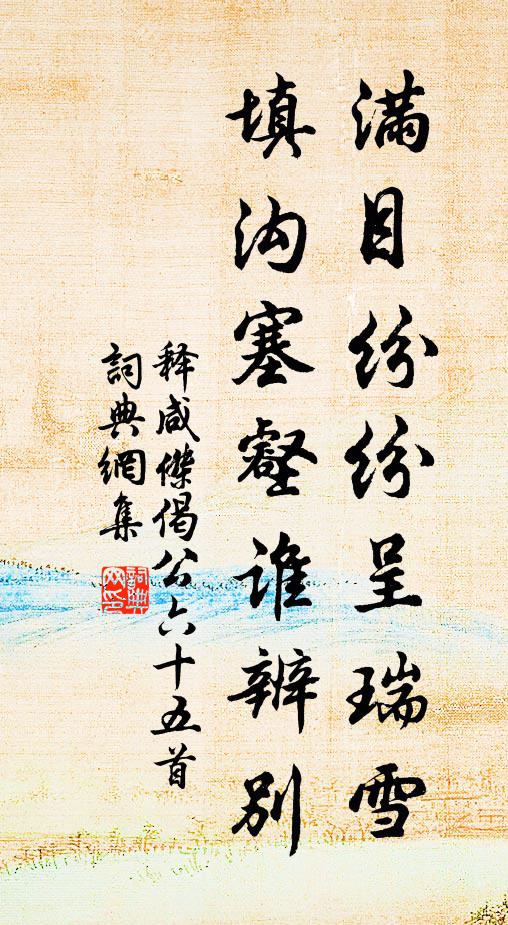 滿目紛紛呈瑞雪
填沟塞壑誰辨別
释咸傑偈公六十五首
詞典網集
詞典